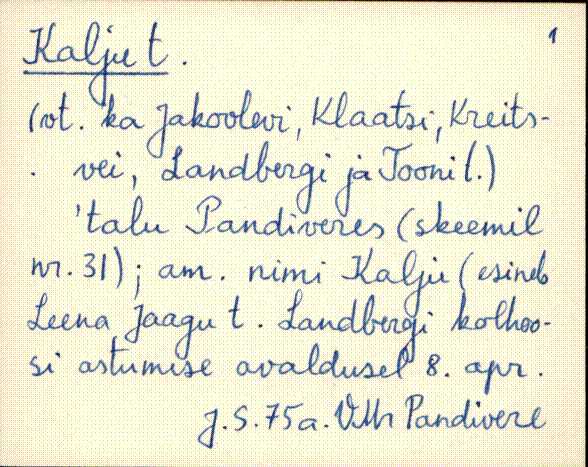 1
Kalju t.
(vt. ka Jakoolevi, Klaatsi, Kreits-
vei, Landbergi ja Tooni t.)
'talu Pandiveres (skeemil
nr. 31); am. nimi Kalju (esineb
Leena Jaagu t. Landbergi kolhoo-
si astumise avaldusel 8. apr.
J.S. 75a. VMr Pandivere